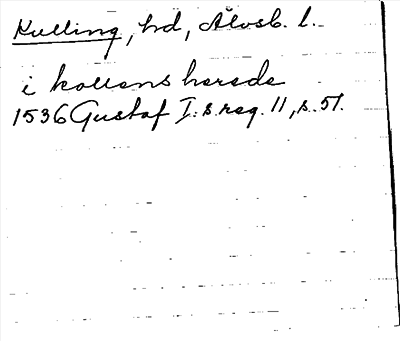 Kulling, hd, Älvsb. l.
i kollens herede
1536 Gustaf I:s reg. 11, s. 51.